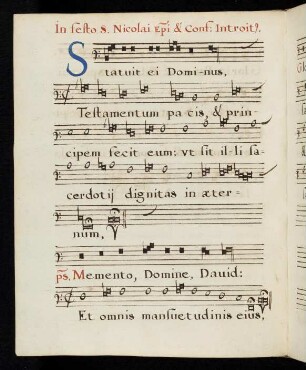 In festo S. Nicolai Ep̃i & Conf. Introit9.
Statuit ei Dominus,
Testamentum pacis, & prin
cipem fecit eum: vt sit il-li sa-
cerdotij dignitas in æter-
num,
ps. Memento, Domine, Dauid:
Et omnis mansuetudinis eius,